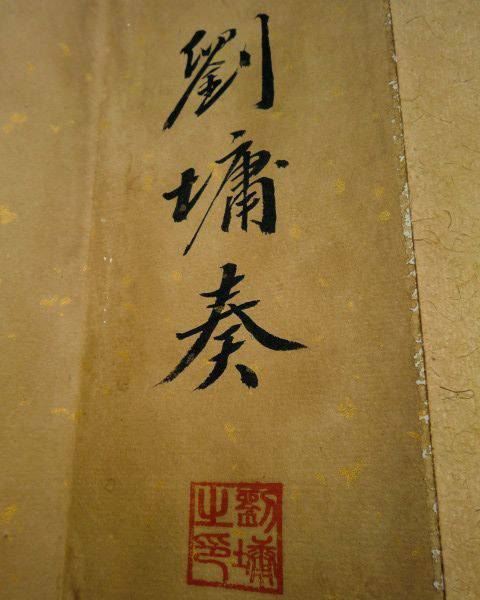 劉墉奏
劉墉之印